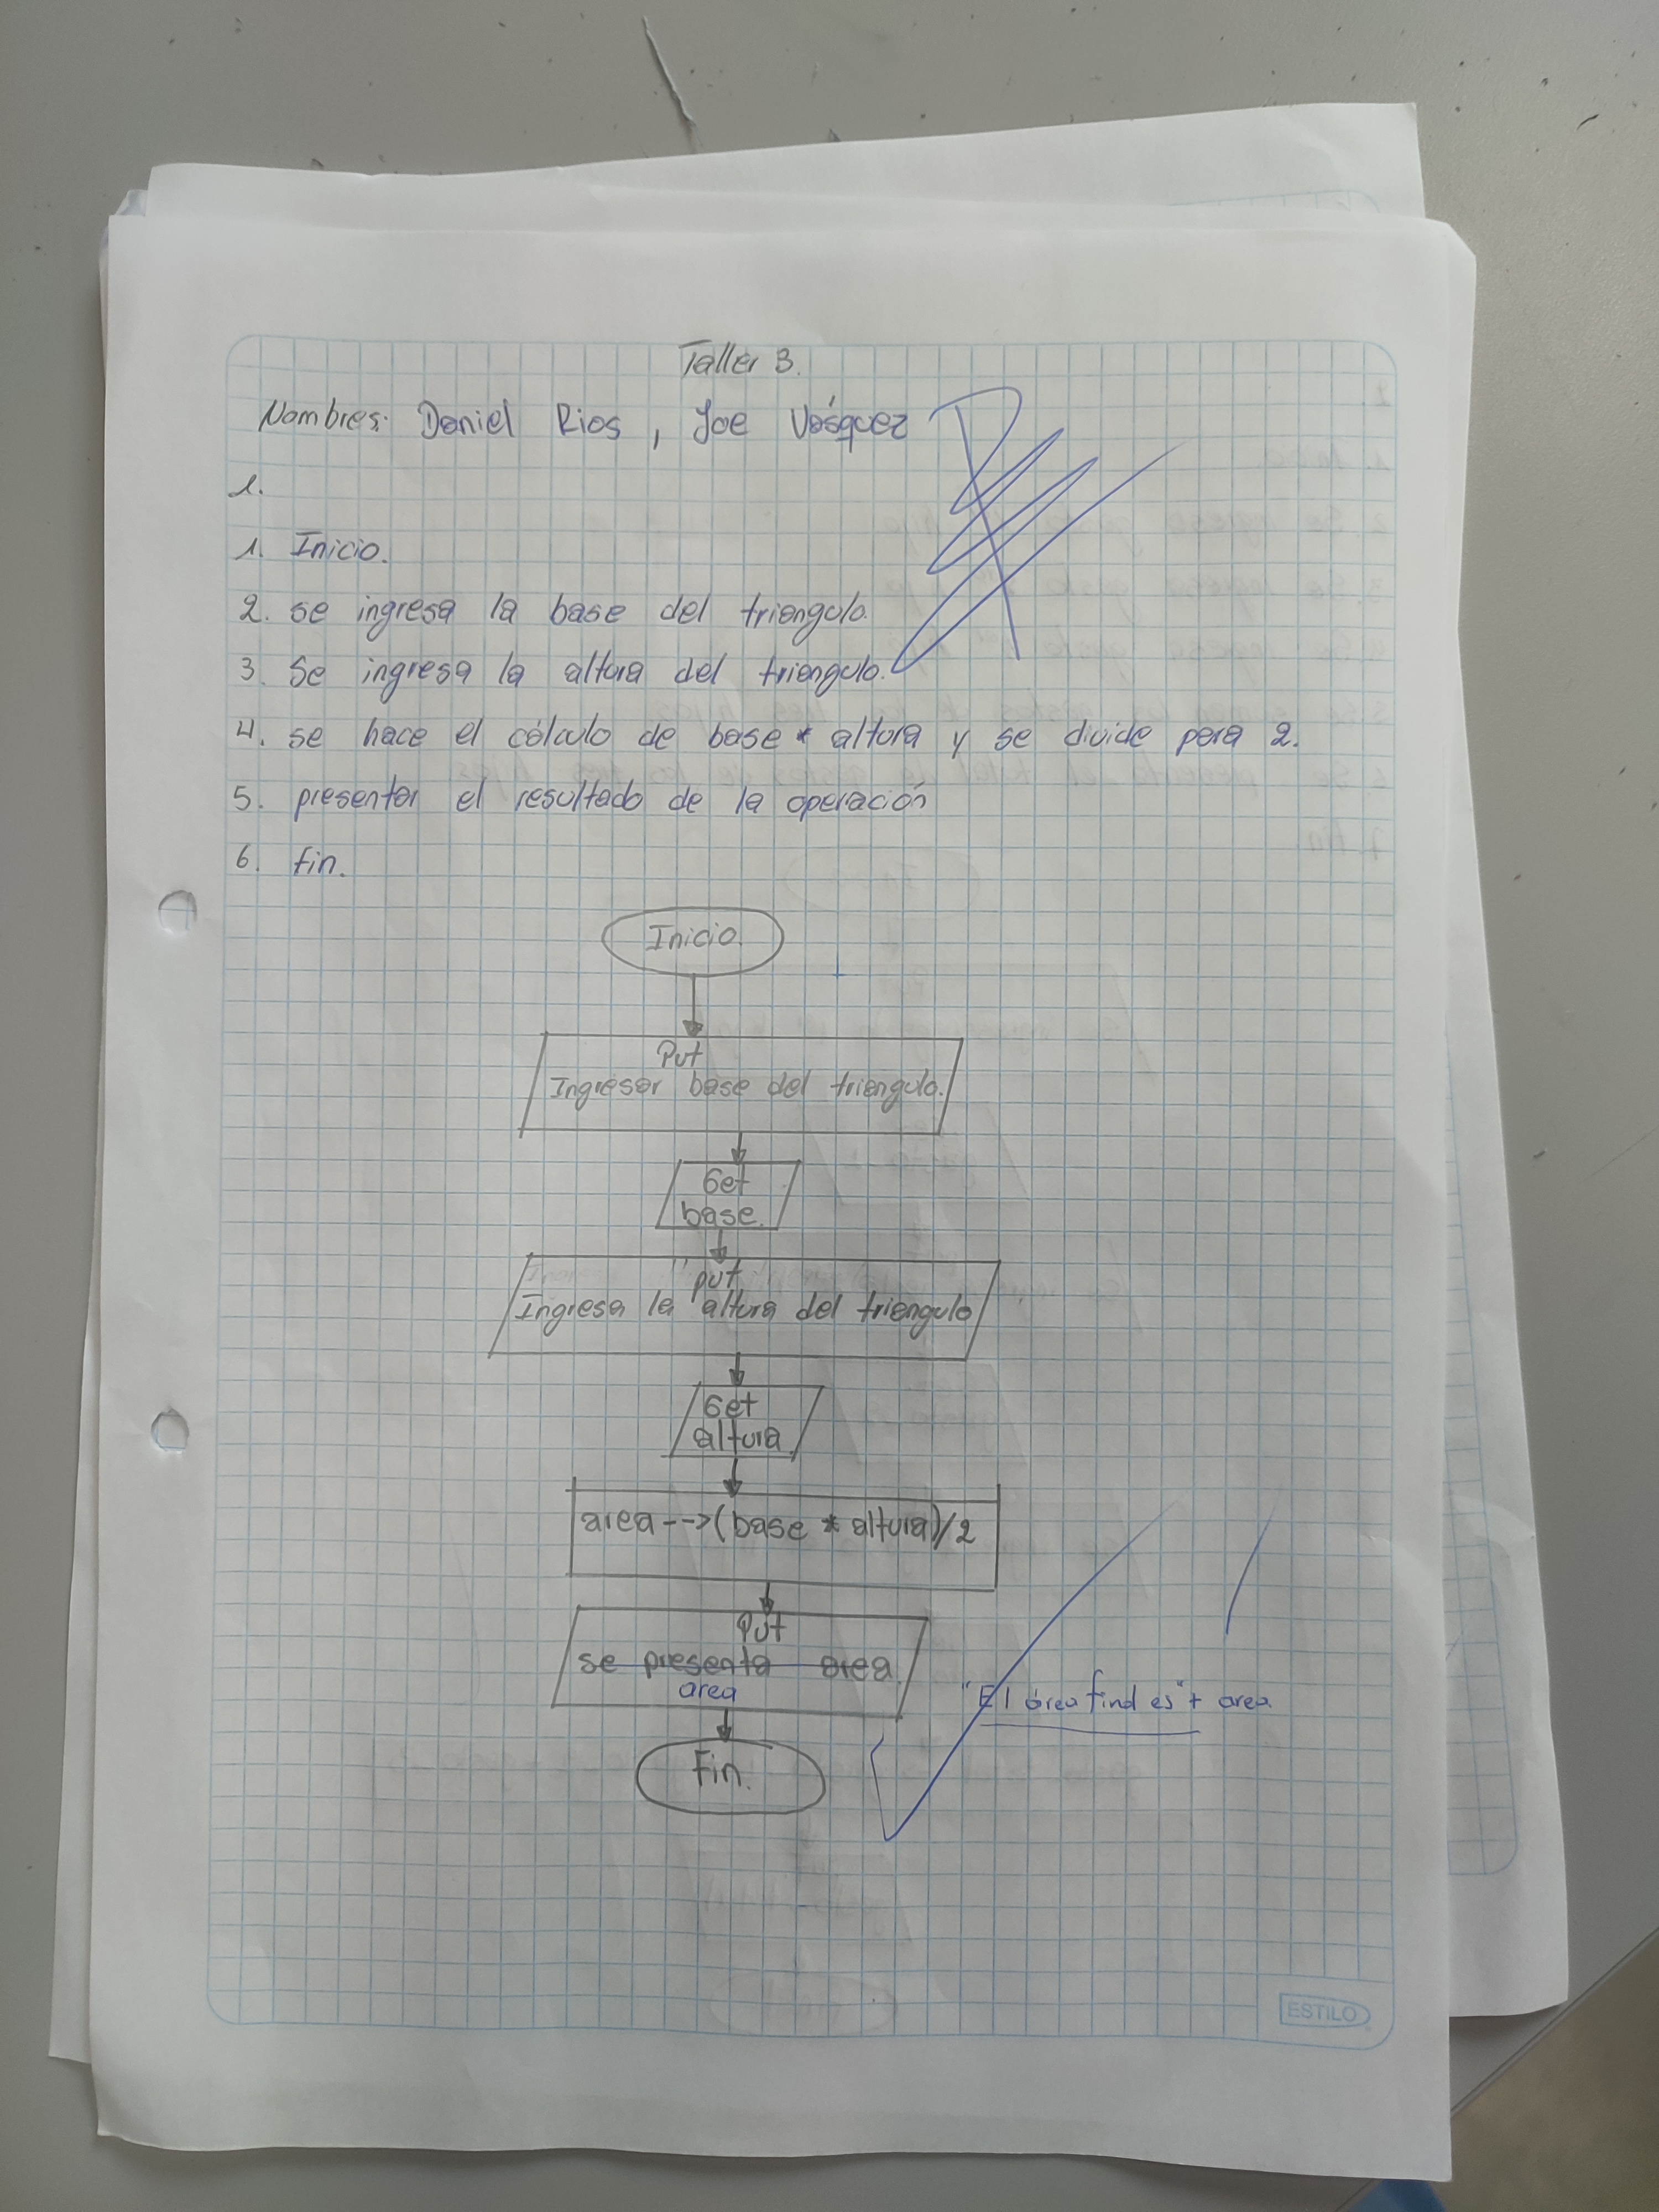 Taller 3.
Nombres: Daniel Rios, Joe Vásquez
1.
1. Inicio.
2. se ingresa la base del triangulo.
3. Se ingresa la altura del triangulo.
4. se hace el cálculo de base * altura y se divide para 2.
5. presentar el resultado de la operación
6. Fin.
Inicio.
Put
Ingresar base del triangulo.
Get
base.
put
Ingresa la altura del triangulo
Get
altura
area-->(base * altura)/2
Put
se presenta area
area
"El área final es" + area
Fin.
ESTILO